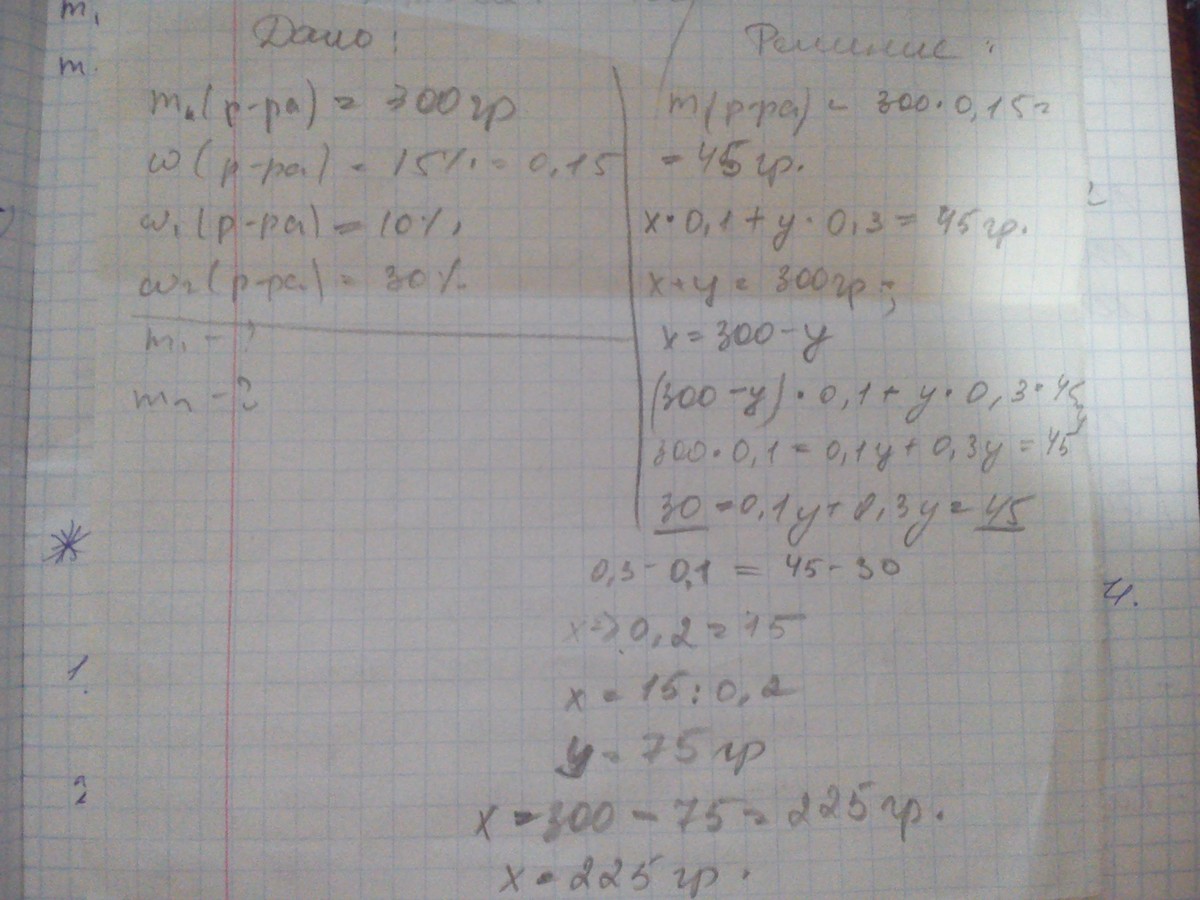 m₁
m.
Дано:
mₙ(р-ра) = 300гр
ω(р-ра) = 15% = 0,15
ω₁(р-ра) = 10%
ω₂(р-ра) = 30%
m₁ - ?
m₂ - ?
Решение:
m(р-ра) = 300·0,15=
= 45гр.
x·0,1+y·0,3=45гр.
x+y = 300гр;
x=300-y
(300-y)·0,1+y·0,3·45
300·0,1=0,1y+0,3y=45
30=0,1y+0,3y=45
0,3-0,1 = 45-30
0,2=15
x = 15:0,2
y = 75гр
x=300-75=225гр.
x=225гр.
*
1.
2
4.